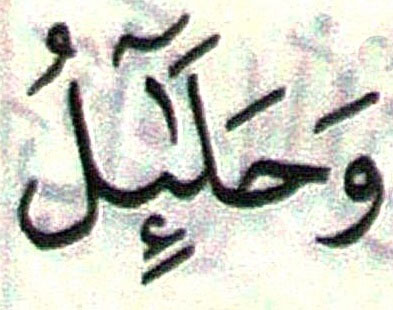 وَحَلَٰٓئِلُ